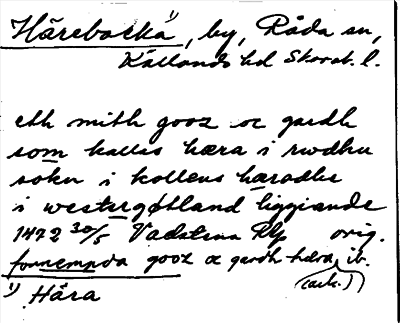 Härebacka 1), by, Råda sn,
Kållands hd Skarab. l.
eth mith gooz oc gardh
som kallas hæra i rwdhu
sokn i kollens hæradhe
i westergøtland liggiande
1472 30/5 Vadstena Klp orig.
fornempda gooz oc gardh hæra ib.
(ack.)
1) Hära